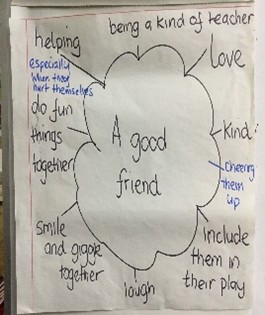 being a kind of teacher
helping
especially
when they
hurt themselves
love
do fun
things
together
A good
friend
Kind
cheering
them
up
include
them in
their play
smile
and giggle
together
laugh